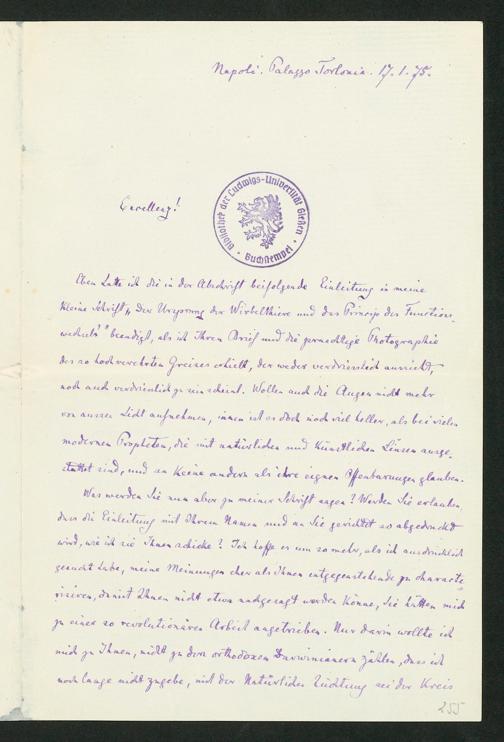 Napoli. Palazzo Torlonia. 17.1.75.
Bibliothek der Ludwigs-Universität Gießen
Buchstempel
Excellenz!
Eben hatte ich die in der Abschrift beifolgende Einleitung in meine
kleine Schrift „Der Ursprung der Wirbelthiere und das Princip des Functions-
wechsels" beendigt, als ich Ihren Brief und die prachtvolle Photographie
des so hochverehrten Greises erhielt, der weder verdriesslich aussieht,
noch auch verdriesslich zu sein scheint. Wollen auch die Augen nicht mehr
von aussen Licht aufnehmen, innen ist es doch noch viel heller, als bei vielen
modernen Propheten, die mit natürlichen und künstlichen Linsen ausge-
stattet sind, und an keine andern als ihre eignen Offenbarungen glauben.
Was werden Sie nun aber zu meiner Schrift sagen? Werden Sie erlauben,
dass die Einleitung mit Ihrem Namen und an Sie gerichtet so abgedruckt
wird, wie ich sie Ihnen schicke? Ich hoffe es um so mehr, als ich ausdrücklich
gesucht habe, meine Meinungen eher als Ihnen entgegenstehende zu characte-
risiren, damit Ihnen nicht etwa nachgesagt werden könne, Sie hätten mich
zu einer so revolutionären Arbeit angetrieben. Nur darin wollte ich
mich zu Ihnen, nicht zu den orthodoxen Darwinianern zählen, dass ich
noch lange nicht zugebe, mit der Natürlichen Züchtung sei der Kreis
255